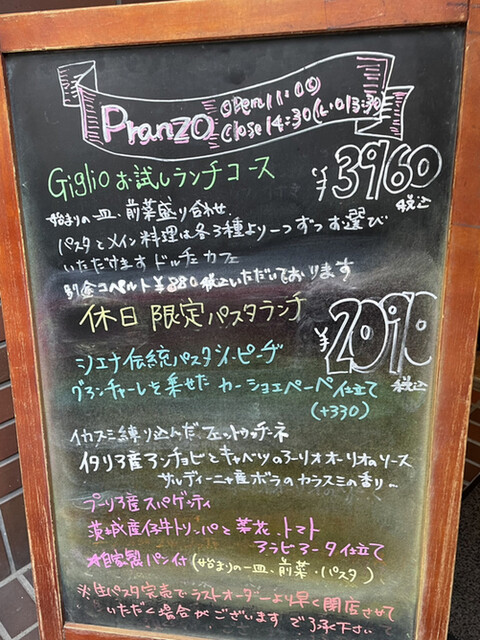 Pranzo
open 11:00
close 14:30 (L.O 13:30)
Giglio お試しランチコース
¥3960
税込
始まりの一皿、前菜盛り合わせ
パスタとメイン料理は各3種より一つずつお選び
いただけます ドルチェ カフェ
別途コペルト ¥880税込いただいております
休日限定パスタランチ
¥2090
税込
シエナ伝統パスタ ピーチ
グアンチャーレを乗せた カーチョエペーペ仕立て
(+330)
イカスミ練り込んだフェットゥッチーネ
イタリア産アンチョビとキャベツのアーリオオーリオのソース
サルディーニャ産ボラのカラスミの香り...
プーリア産スパゲッティ
茨城産仔牛トリッパと菜花、トマト
アラビアータ仕立て
★自家製パン付 (始まりの一皿、前菜、パスタ)
※生パスタ完売でラストオーダーより早く閉店させて
いただく場合がございます ご了承下さい